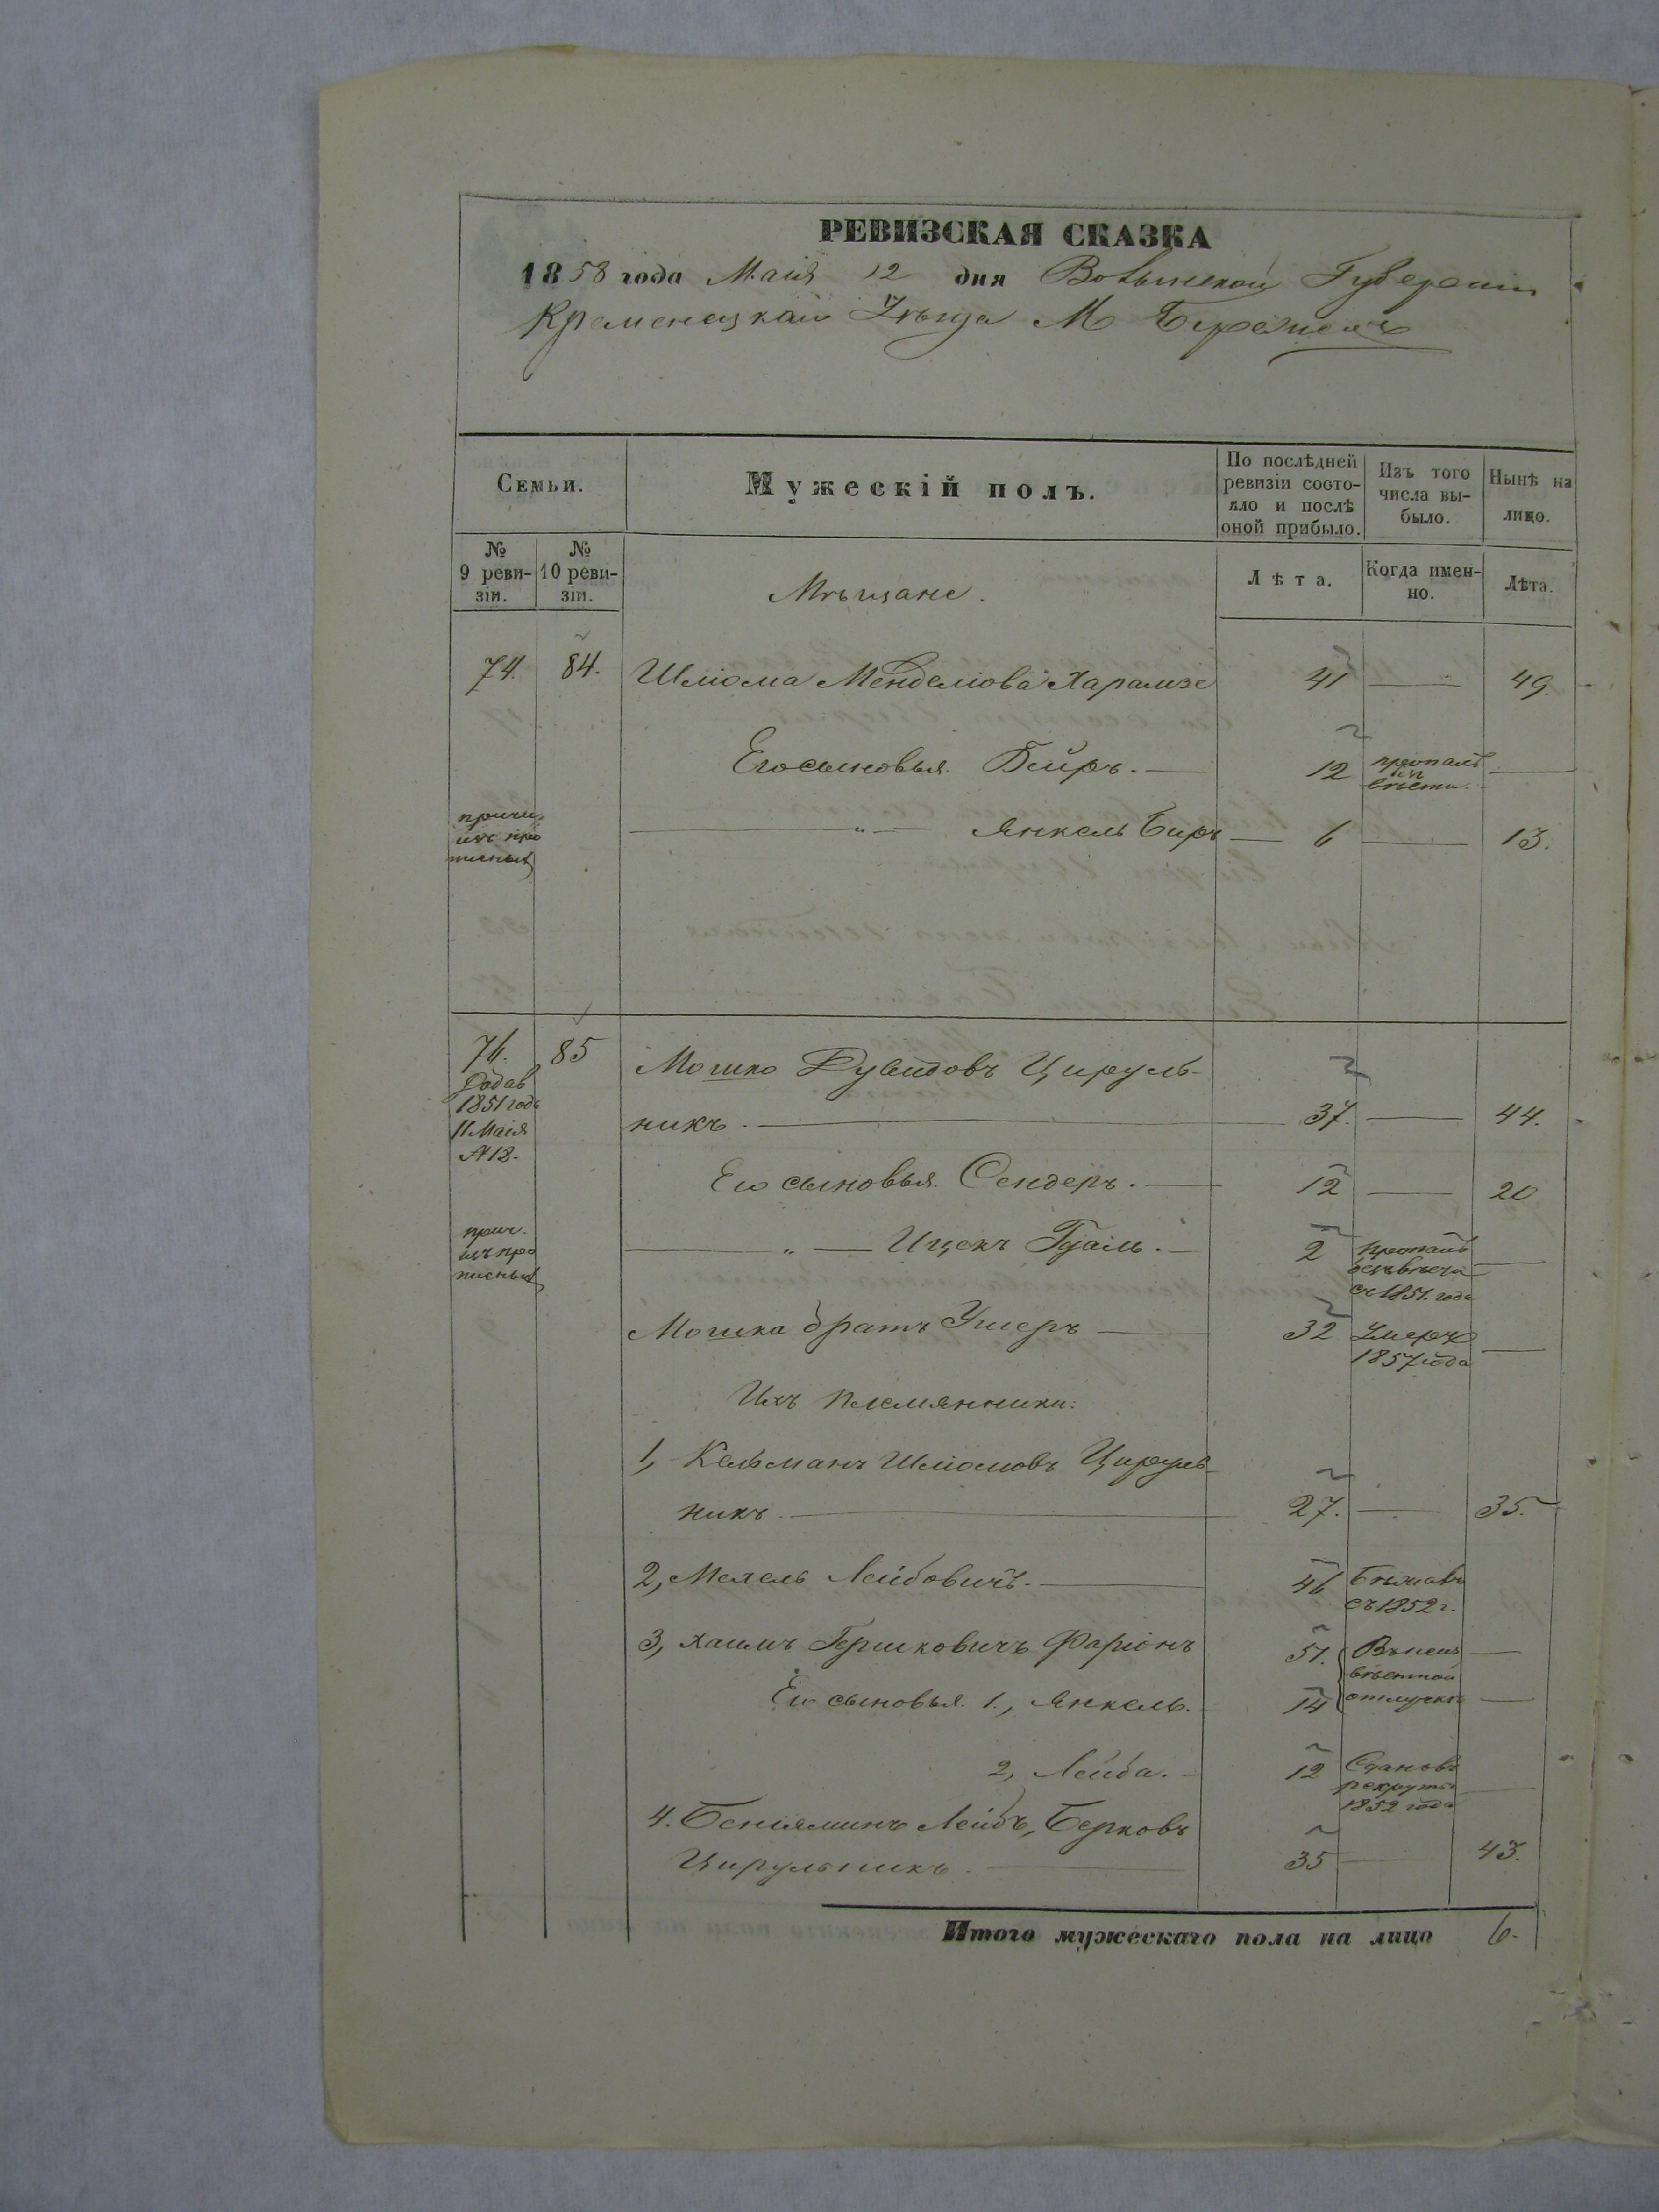 РЕВИЗСКАЯ СКАЗКА
1858 года Маія 12 дня Волынской Губерніи
Кременецкаго Уѣзда М Бережецъ
Семьи.
Мужескій полъ.
По послѣдней ревизіи состояло и послѣ оной прибыло.
Изъ того числа выбыло.
Нынѣ на лицо.
№ 9 ревизіи.
№ 10 ревизіи.
Мѣщане.
Лѣта.
Когда именно.
Лѣта.
74. 84. Шліома Менделіовъ 41 — 49.
Его сыновья. Беиръ. — 12 пропалъ безъ вѣсти —
причи. изъ прописныхъ
„ — Янкель Биръ — 6 — 13.
76. 85 Мошко Дувидовъ Цируль-
Родав 1851 года 11 Маія №12.
никъ. — 37. — 44.
Его сыновья. Сендеръ. — 12 — 20
прич. изъ прописныхъ
„ — Ицекъ — 2 пропалъ безъ вѣсти съ 1851. года —
Мошка братъ Ушеръ — 32 Умеръ 1857 года —
Ихъ племянники:
1, Кельманъ Шліомовъ Цируль-
никъ. — 27. — 35.
2, Мехель Лейбовичъ. — 46 Бѣжавъ съ 1852 г.
3, Хаимъ Гершковичъ Фаріонъ 51. Въ неизвѣстной отлучкѣ —
Его сыновья. 1., Янкель. 14 —
2, Лейба. — 12 Сданъ въ рекруты 1852 года —
4. Беніяминъ Лейбъ, Берковъ
Цирульникъ. — 35 — 43.
Итого мужескаго пола на лицо 6.